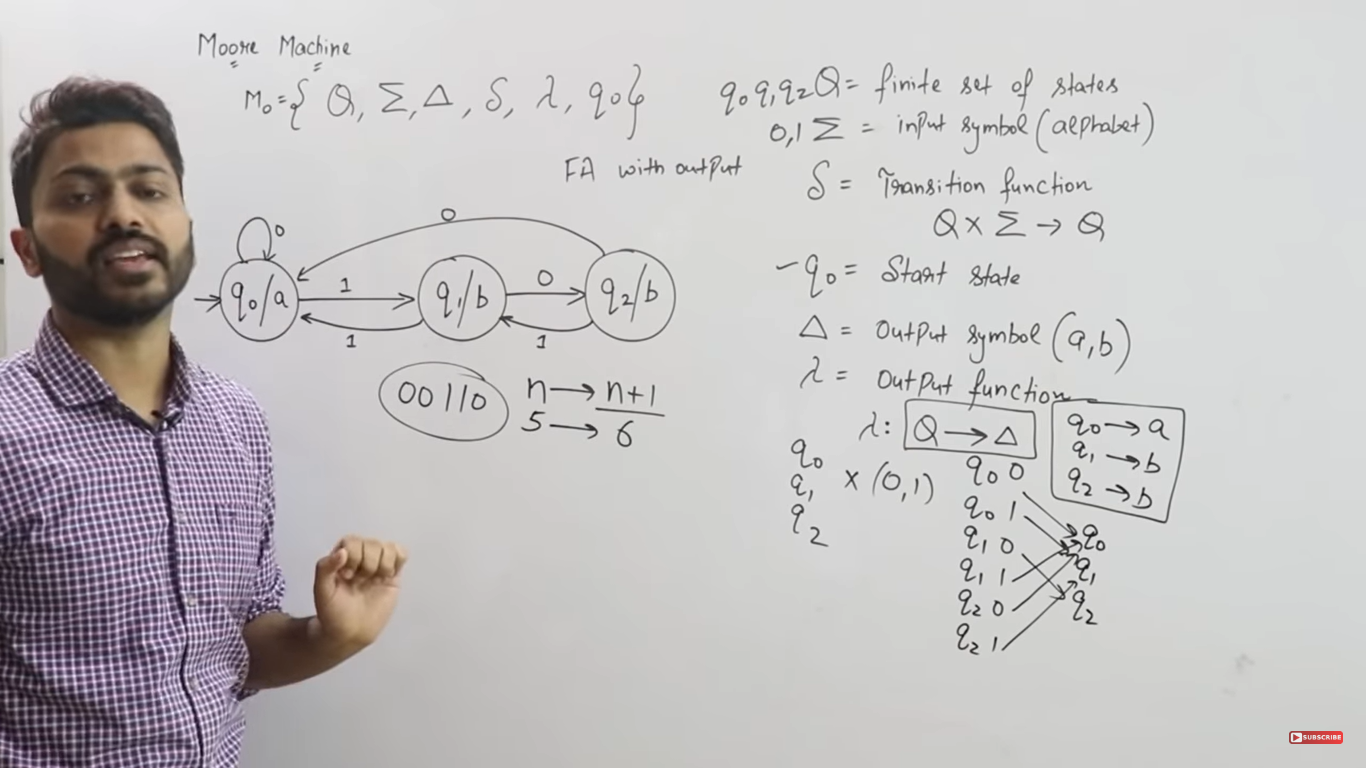 Moore Machine
M₀ = { Q, Σ, Δ, δ, λ, q₀ }
FA with output
0
0
1
0
q₀/a
q₁/b
q₂/b
1
1
00110
n → n+1
5 → 6
q₀ q₁ q₂ Q = finite set of states
0,1 Σ = input symbol (alphabet)
δ = Transition function
Q × Σ → Q
- q₀ = Start state
Δ = Output symbol (a,b)
λ = Output function
λ: Q → Δ
q₀ → a
q₁ → b
q₂ → b
q₀
q₁
q₂
× (0,1)
q₀ 0
q₀ 1
q₁ 0
q₁ 1
q₂ 0
q₂ 1
q₀
q₁
q₂
SUBSCRIBE